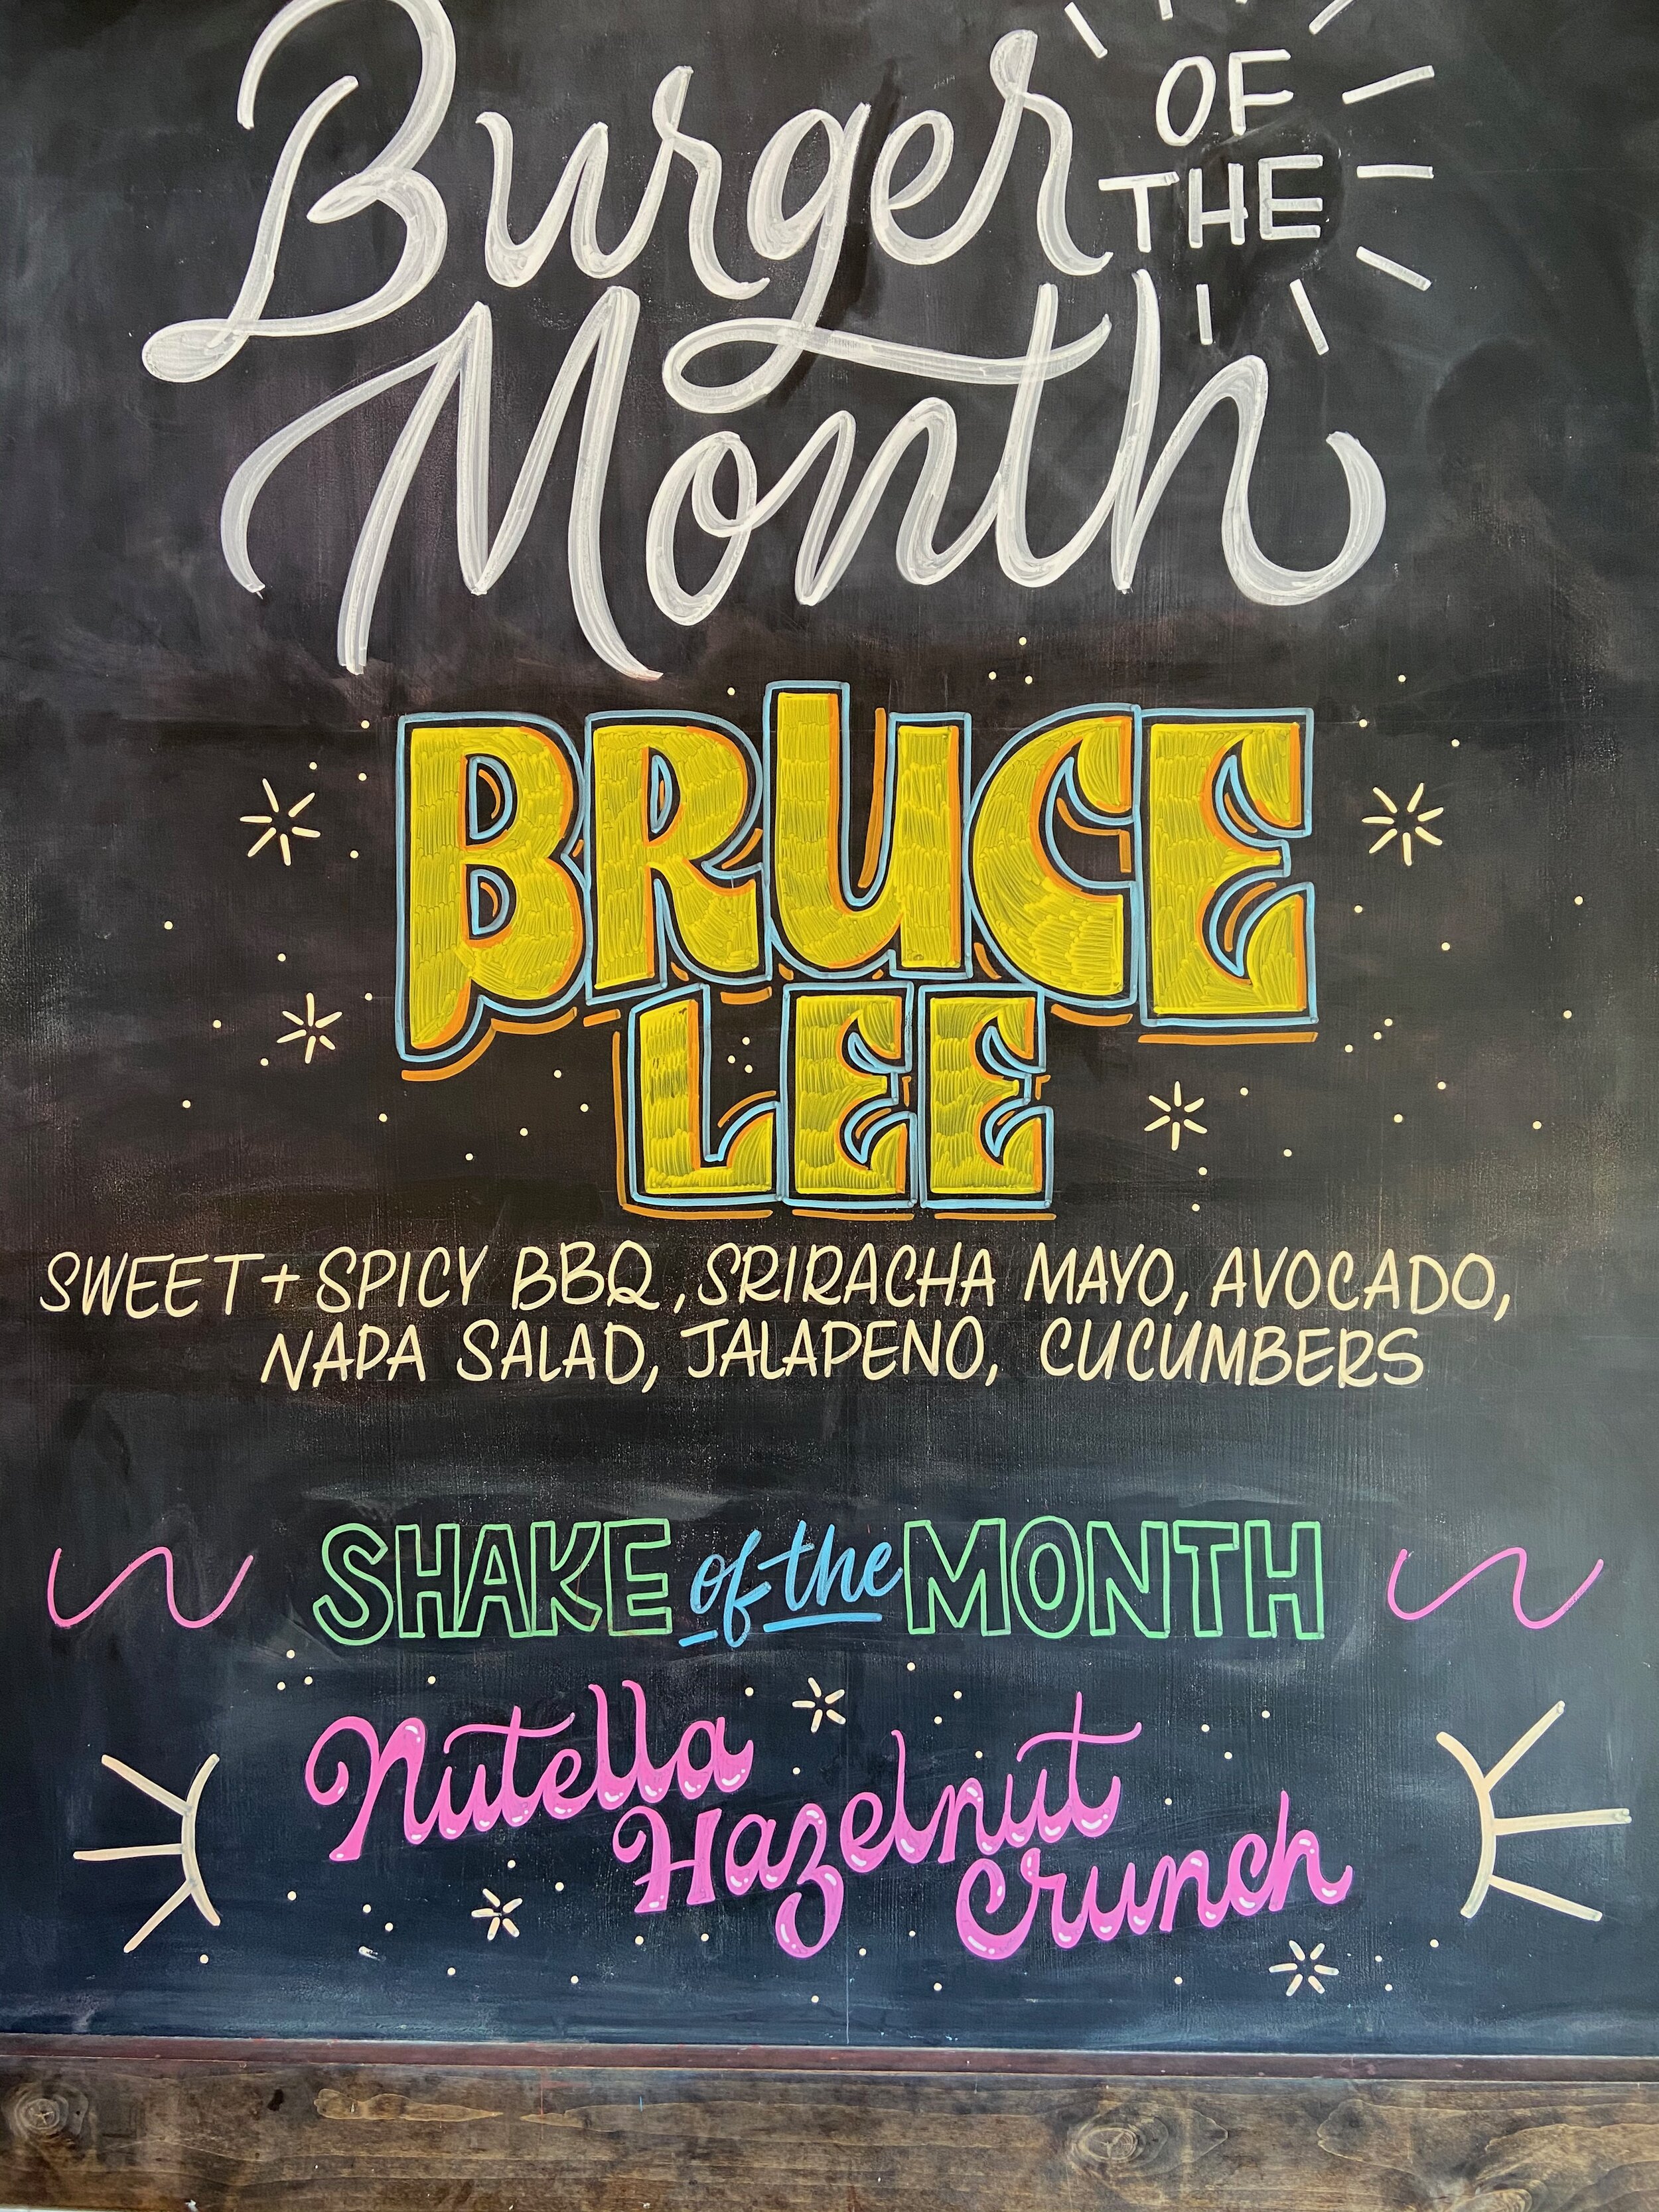 Burger OF THE
Month
BRUCE
LEE
SWEET + SPICY BBQ, SRIRACHA MAYO, AVOCADO,
NAPA SALAD, JALAPENO, CUCUMBERS
SHAKE of the MONTH
Nutella
Hazelnut
Crunch